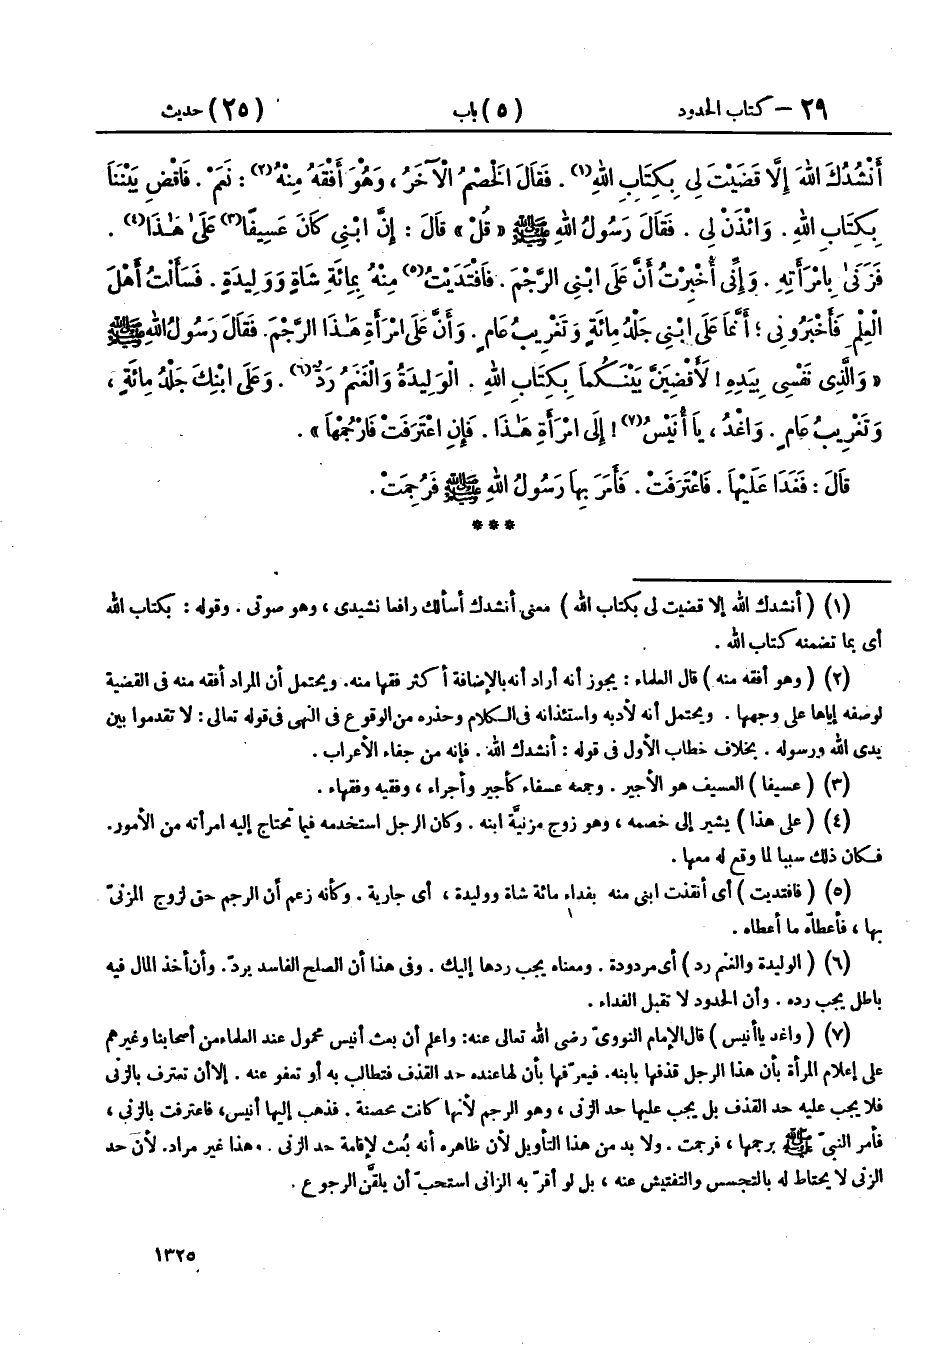 ٢٩ – كتاب الحدود (٥) باب (٢٥) حديث
أَنْشُدُكَ اللهَ إِلَّا قَضَيْتَ لِي بِكِتَابِ اللهِ(١) . فَقَالَ الْخَصْمُ الْآخَرُ ، وَهُوَ أَفْقَهُ مِنْهُ(٢) : نَعَمْ . فَاقْضِ بَيْنَنَا
بِكِتَابِ اللهِ . وَائْذَنْ لِي . فَقَالَ رَسُولُ اللهِ ﷺ « قُلْ » قَالَ : إِنَّ ابْنِي كَانَ عَسِيفًا(٣) عَلَىٰ هَٰذَا(٤) .
فَزَنَىٰ بِامْرَأَتِهِ . وَإِنِّي أُخْبِرْتُ أَنَّ عَلَى ابْنِي الرَّجْمَ . فَافْتَدَيْتُ(٥) مِنْهُ بِمِائَةِ شَاةٍ وَوَلِيدَةٍ . فَسَأَلْتُ أَهْلَ
الْعِلْمِ فَأَخْبَرُونِي ؛ أَنَّمَا عَلَى ابْنِي جَلْدُ مِائَةٍ وَتَغْرِيبُ عَامٍ . وَأَنَّ عَلَى امْرَأَةِ هَٰذَا الرَّجْمَ. فَقَالَ رَسُولُ اللهِ ﷺ
« وَالَّذِي نَفْسِي بِيَدِهِ ! لَأَقْضِيَنَّ بَيْنَكُمَا بِكِتَابِ اللهِ . الْوَلِيدَةُ وَالْغَنَمُ رَدٌّ(٦) . وَعَلَى ابْنِكَ جَلْدُ مِائَةٍ ،
وَتَغْرِيبُ عَامٍ . وَاغْدُ ، يَا أُنَيْسُ(٧) ! إِلَى امْرَأَةِ هَٰذَا . فَإِنِ اعْتَرَفَتْ فَارْجُمْهَا » .
قَالَ : فَغَدَا عَلَيْهَا . فَاعْتَرَفَتْ . فَأَمَرَ بِهَا رَسُولُ اللهِ ﷺ فَرُجِمَتْ .
***
(١) ( أنشدك الله إلا قضيت لى بكتاب الله ) معنى أنشدك أسألك رافعا نشيدى ، وهو صوتى . وقوله : بكتاب الله
أى بما تضمنه كتاب الله .
(٢) ( وهو أفقه منه ) قال العلماء : يجوز أنه أراد أنه بالإضافة أكثر فقها منه. ويحتمل أن المراد أفقه منه فى القضية
لوصفه إياها على وجهها . ويحتمل أنه لأدبه واستئذانه فى الكلام وحذره من الوقوع فى النهى فى قوله تعالى : لا تقدموا بين
يدى الله ورسوله . بخلاف خطاب الأول فى قوله : أنشدك الله . فإنه من جفاء الأعراب .
(٣) ( عسيفا ) العسيف هو الأجير . وجمعه عسفاء كأجير وأجراء ، وفقيه وفقهاء .
(٤) ( على هذا ) يشير إلى خصمه ، وهو زوج مزنيَّة ابنه . وكان الرجل استخدمه فيما تحتاج إليه امرأته من الأمور.
فكان ذلك سببا لما وقع له معها .
(٥) ( فافتديت ) أى أنقذت ابنى منه بفداء مائة شاة ووليدة ، أى جارية . وكأنه زعم أن الرجم حق لزوج المزنىّ
بها ، فأعطاه ما أعطاه .
(٦) ( الوليدة والغنم رد ) أى مردودة . ومعناه يجب ردها إليك . وفى هذا أن الصلح الفاسد يردّ . وأن أخذ المال فيه
باطل يجب رده . وأن الحدود لا تقبل الفداء .
(٧) ( واغد يا أنيس ) قال الإمام النووىّ رضى الله تعالى عنه: واعلم أن بعث أنيس محمول عند العلماء من أصحابنا وغيرهم
على إعلام المرأة بأن هذا الرجل قذفها بابنه. فيعرّفها بأن لها عنده حد القذف فتطالب به أو تعفو عنه . إلا أن تعترف بالزنى
فلا يجب عليه حد القذف بل يجب عليها حد الزنى ، وهو الرجم لأنها كانت محصنة . فذهب إليها أنيس، فاعترفت بالزنى ،
فأمر النبىّ ﷺ برجمها ، فرجمت . ولا بد من هذا التأويل لأن ظاهره أنه بُعث لإقامة حد الزنى . وهذا غير مراد. لأن حد
الزنى لا يحتاط له بالتجسس والتفتيش عنه ، بل لو أقرّ به الزانى استحبّ أن يلقَّن الرجوع .
١٣٢٥